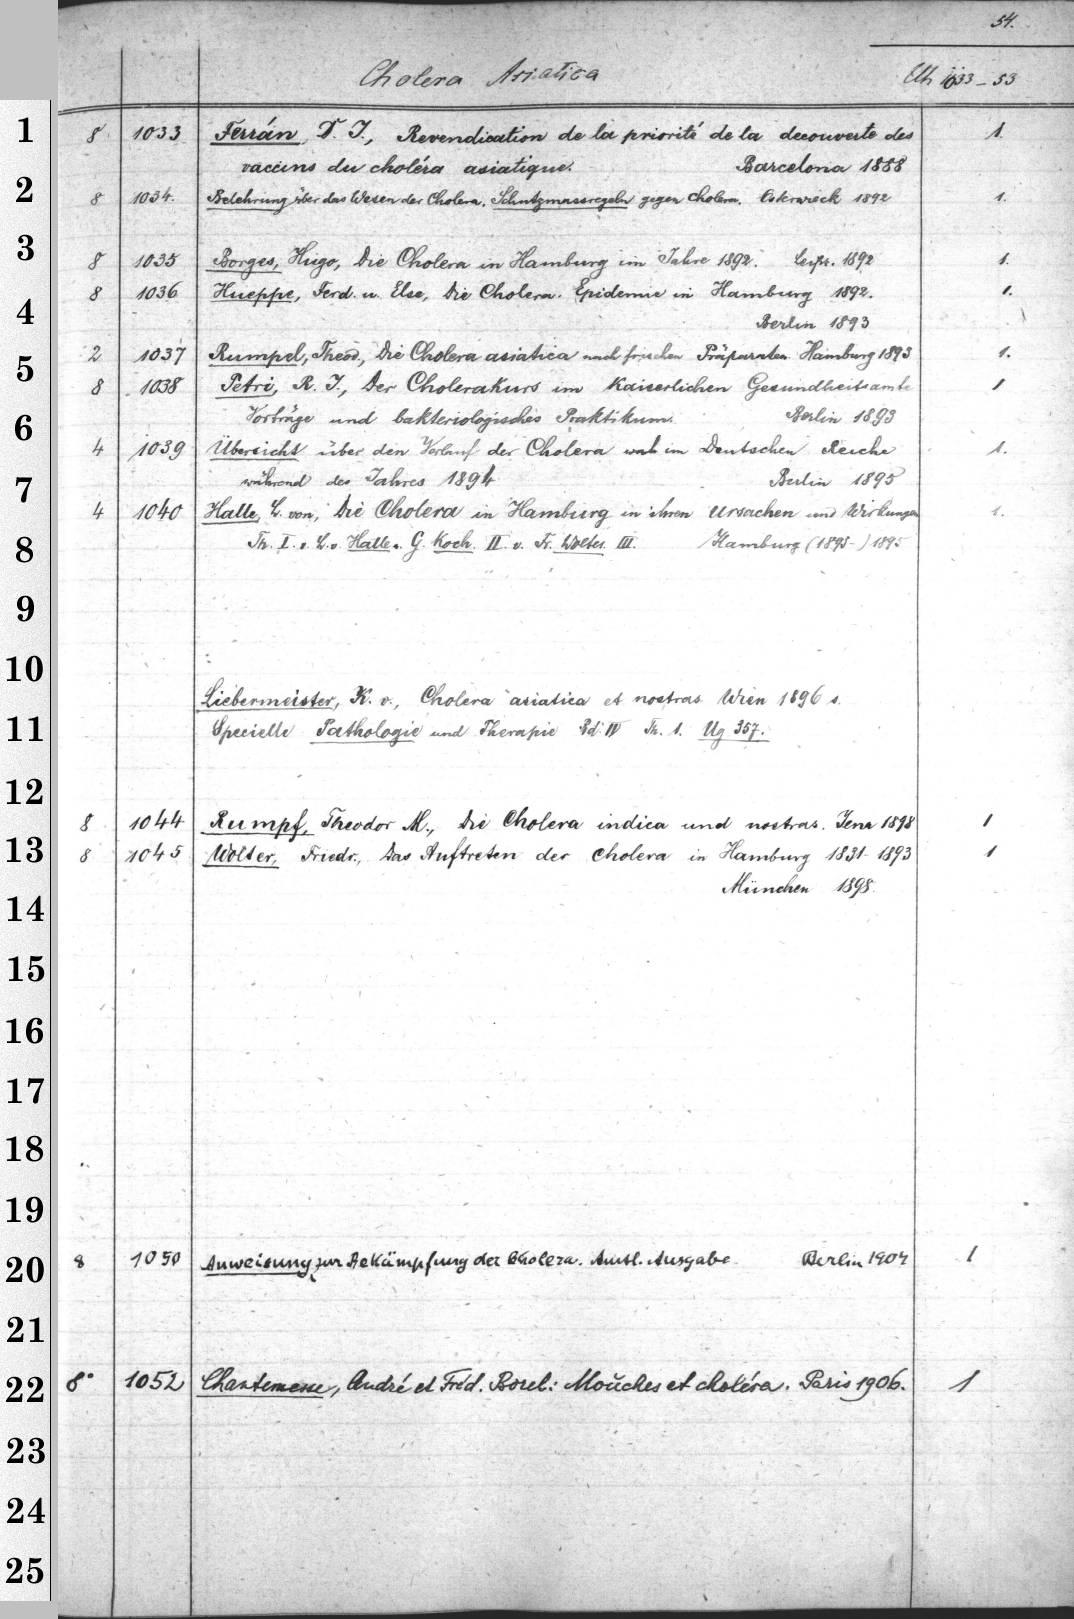 54.
Cholera Asiatica Uh 1033-53
1 8 1033 Ferrán, D. J., Revendication de la priorité de la decouverte des 1.
vaccins du choléra asiatique. Barcelona 1888
2 8 1034. Belehrung über das Wesen der Cholera. Schutzmassregeln gegen Cholera. Osterwieck 1892 1.
3 8 1035 Borges, Hugo, Die Cholera in Hamburg im Jahre 1892. Leipz. 1892 1.
4 8 1036 Hueppe, Ferd. u. Else, Die Cholera. Epidemie in Hamburg 1892. 1.
Berlin 1893
5 2 1037 Rumpel, Theod., Die Cholera asiatica nach frischen Präparaten Hamburg 1893 1.
8 1038 Petri, R. J., Der Cholerakurs im Kaiserlichen Gesundheitsamte 1
6 Vorträge und bakteriologisches Praktikum. Berlin 1893
4 1039 Übersicht über den Verlauf der Cholera im Deutschen Reiche 1.
7 während des Jahres 1894 Berlin 1895
4 1040 Halle, E. von, Die Cholera in Hamburg in ihren Ursachen und Wirkungen 1.
8 Th. I. v. E. v. Halle. G. Koch. II v. Fr. Wolter. III. Hamburg (1895-) 1895
9
10
Liebermeister, K. v., Cholera asiatica et nostras Wien 1896 s.
11 Specielle Pathologie und Therapie Bd. IV Th. 1. Ug 357.
12
8 1044 Rumpf, Theodor M., Die Cholera indica und nostras. Jena 1898 1
13 8 1045 Wolter, Friedr., Das Auftreten der Cholera in Hamburg 1831-1893 1
München 1898
14
15
16
17
18
19
20 8 1050 Anweisung zur Bekämpfung der Cholera. Amtl. Ausgabe. Berlin 1904 1
21
22 8° 1052 Chantemesse, André et Fréd. Borel: Mouches et choléra. Paris 1906. 1
23
24
25